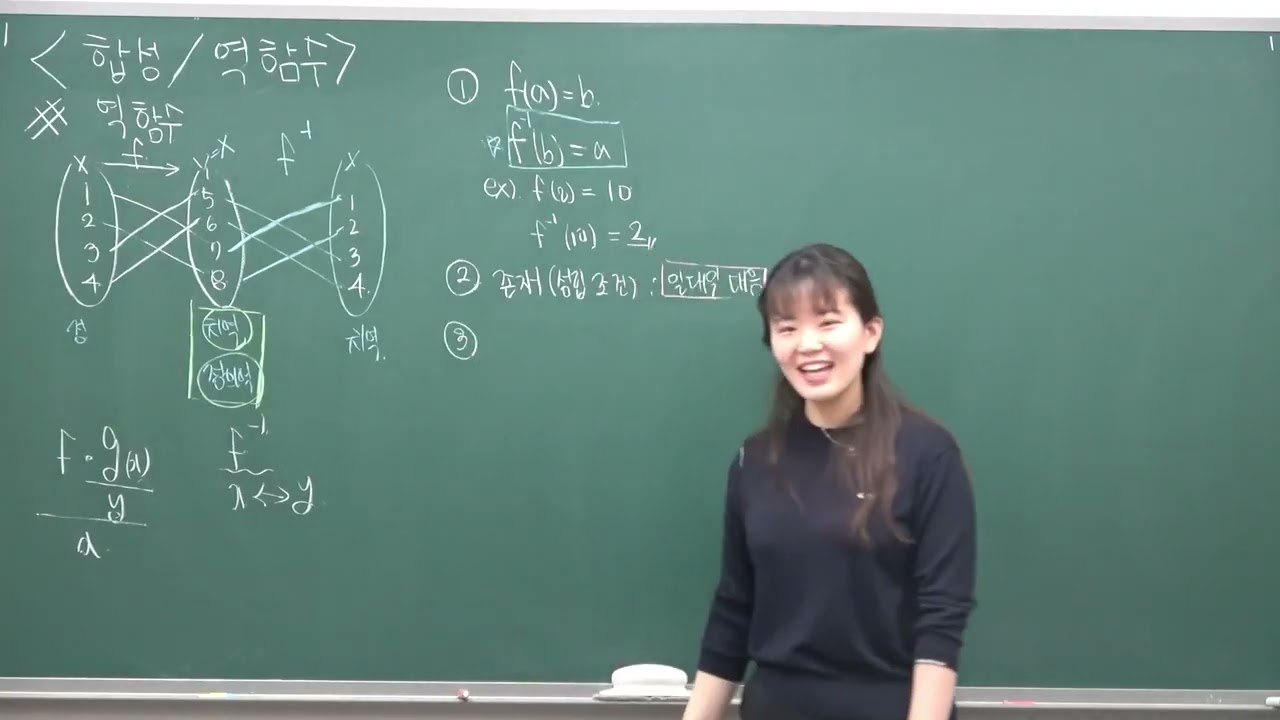 1
1
<합성/역함수>
※ 역함수
f
X Y=X f⁻¹ X
1 5 1
2 6 2
3 7 3
4 8 4
정
치역
치역
공역
f∘g(x) f⁻¹
y x↔y
① f(a)=b.
☆ f⁻¹(b)=a
ex). f(2)=10
f⁻¹(10)=2
② 존재(성립 조건) : 일대일 대응
③